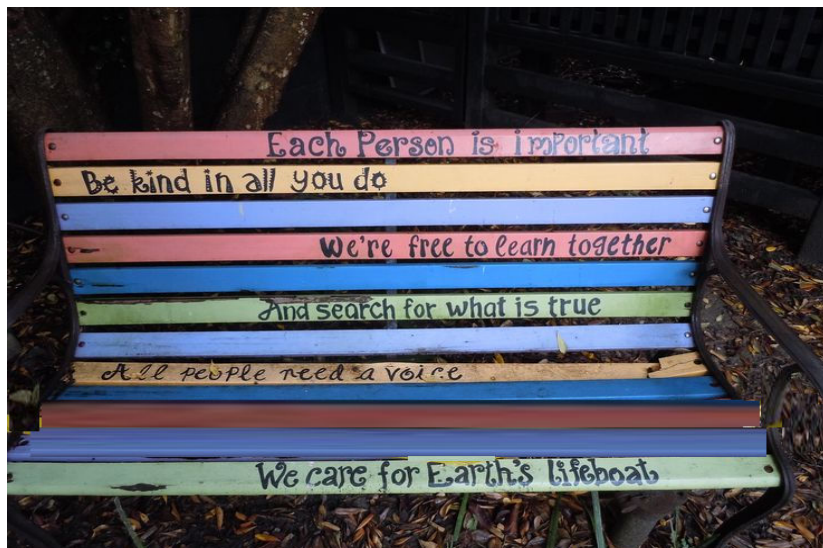 Each Person is important
Be kind in all you do
We're free to learn together
And search for what is true
All people need a voice
We care for Earth's lifeboat